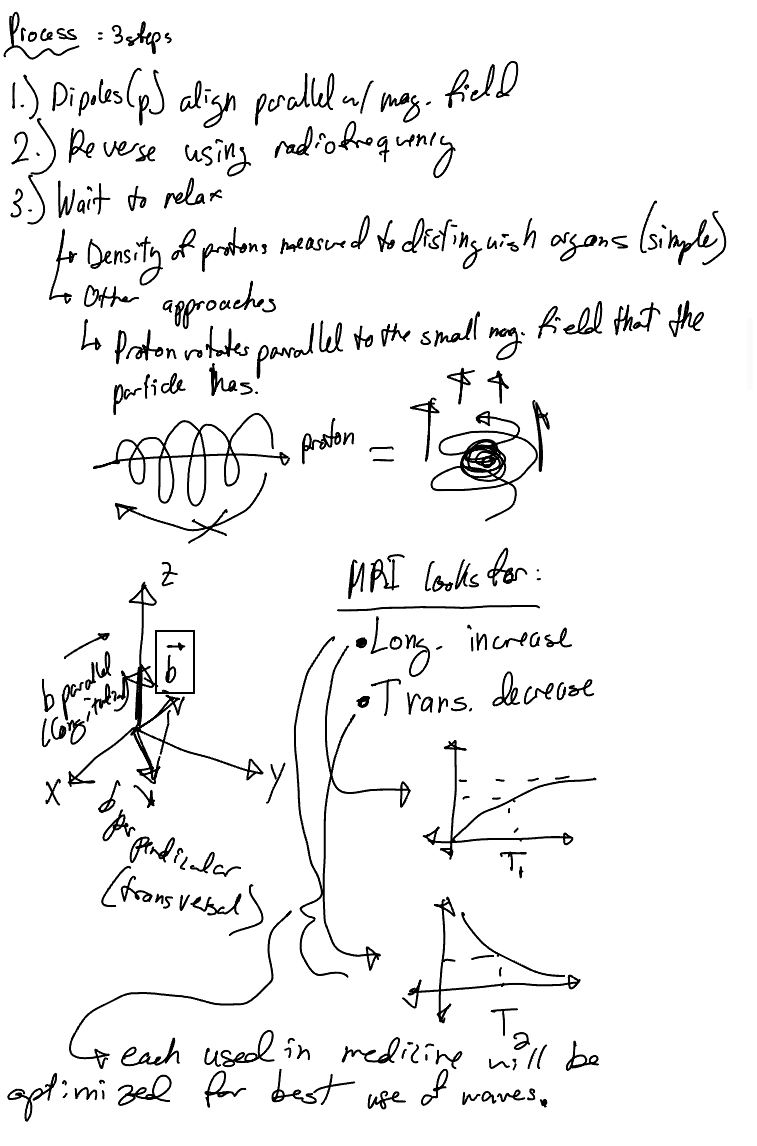 Process : 3 steps
1.) Dipoles (p) align parallel w/ mag. field
2.) Reverse using radiofrequency
3.) Wait to relax
↳ Density of protons measured to distinguish organs (simple)
↳ Other approaches
↳ Proton rotates parralel to the small mag. field that the
particle has.
proton =
z
b parallel
(longitudinal)
b
x
y
b perpendicular
(transversal)
MRI looks for:
• Long. increase
• Trans. decrease
T1
T2
each used in medicine will be
optimized for best use of waves.